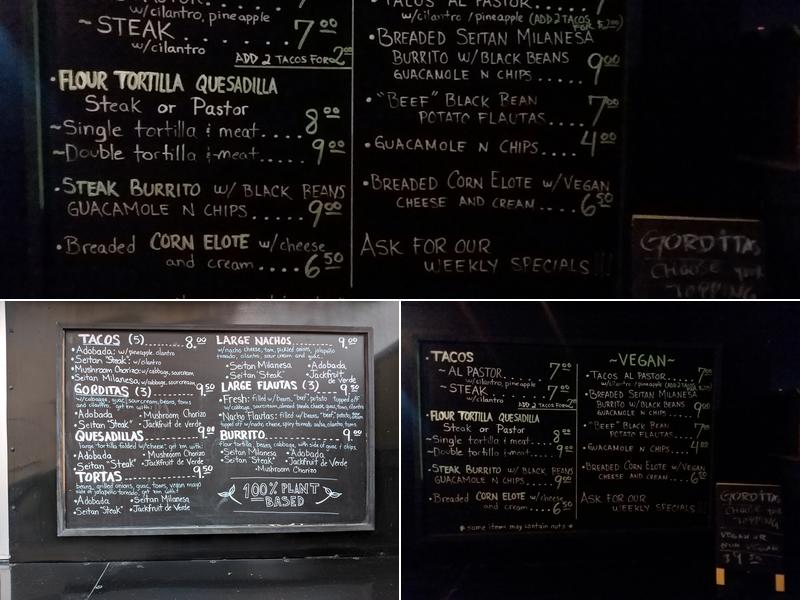 w/cilantro, pineapple
~ STEAK . . . . . . . 7.00
w/cilantro
ADD 2 TACOS FOR 2.00
• FLOUR TORTILLA QUESADILLA
Steak or Pastor
~Single tortilla & meat.... 8.00
~Double tortilla & meat..... 9.00
• STEAK BURRITO w/ BLACK BEANS
GUACAMOLE N CHIPS....... 9.00
• Breaded CORN ELOTE w/cheese
and cream.... 6.50
TACOS AL PASTOR.... 7
w/cilantro/pineapple (ADD 2 TACOS
FOR $2.00)
• BREADED SEITAN MILANESA
BURRITO W/BLACK BEANS
GUACAMOLE N CHIPS.... 9.00
• "BEEF" BLACK BEAN
POTATO FLAUTAS..... 7.00
• GUACAMOLE N CHIPS.... 4.00
• BREADED CORN ELOTE w/VEGAN
CHEESE AND CREAM.... 6.50
ASK FOR OUR
WEEKLY SPECIALS!!!
GORDITAS
CHOOSE your
TOPPING
TACOS (5)........ 8.00
• Adobada: w/pineapple, cilantro
• Seitan Steak: w/cilantro
• Mushroom Chorizo: w/cabbage, sourcream
• Seitan Milanesa w/cabbage, sourcream
GORDITAS (3)...... 9.50
w/cabbage, guac, sourcream, beans, toms
and cilantro, get em with:
• Adobada • Mushroom Chorizo
• Seitan "Steak" • Jackfruit de Verde
QUESADILLAS...... 9.00
large tortilla folded w/cheese, get em with:
• Adobada • Mushroom Chorizo
• Seitan "Steak" • Jackfruit de Verde
TORTAS........ 9.50
beans, grilled onions, guac, toms, vegan mayo
side of jalapeño tomato, get em with:
• Adobada • Seitan Milanesa
• Seitan "Steak" • Jackfruit de Verde
LARGE NACHOS....... 9.00
w/nacho cheese, tom, pickled onions, jalapeño
tomato, cilantro, sour cream and guac
• Seitan Milanesa • Adobada
• Seitan "Steak" • Jackfruit
de Verde
LARGE FLAUTAS (3)... 9.50
• Fresh: filled w/beans, "beef", potato topped off
w/cabbage, sourcream, almond panela cheese, guac, toms, cilantro
• Nacho Flautas: filled w/beans, "beef", potato
topped off w/nacho cheese, spicy tomato salsa, cilantro, toms
BURRITO......... 9.00
flour tortilla, beans, cabbage, with side of guac & chips
• Seitan Milanesa • Adobada
• Seitan "Steak" • Jackfruit de Verde
• Mushroom Chorizo
100% PLANT
BASED
• TACOS
~ AL PASTOR.... 7.00
w/cilantro, pineapple
~ STEAK....... 7.00
w/cilantro
ADD 2 TACOS FOR 2.00
• FLOUR TORTILLA QUESADILLA
Steak or Pastor
~Single tortilla & meat.... 8.00
~Double tortilla & meat..... 9.00
• STEAK BURRITO w/ BLACK BEANS
GUACAMOLE N CHIPS....... 9.00
• Breaded CORN ELOTE w/cheese
and cream.... 6.50
* some items may contain nuts *
~VEGAN~
• TACOS AL PASTOR.... 7.00
w/cilantro/pineapple (ADD 2 TACOS
• BREADED SEITAN MILANESA
BURRITO W/BLACK BEANS
GUACAMOLE N CHIPS.... 9.00
• "BEEF" BLACK BEAN
POTATO FLAUTAS..... 7.00
• GUACAMOLE N CHIPS.... 4.00
• BREADED CORN ELOTE w/VEGAN
CHEESE AND CREAM.... 6.50
ASK FOR OUR
WEEKLY SPECIALS
GORDITAS
CHOOSE your
TOPPING
VEGAN OR
NON VEGAN
$9.50